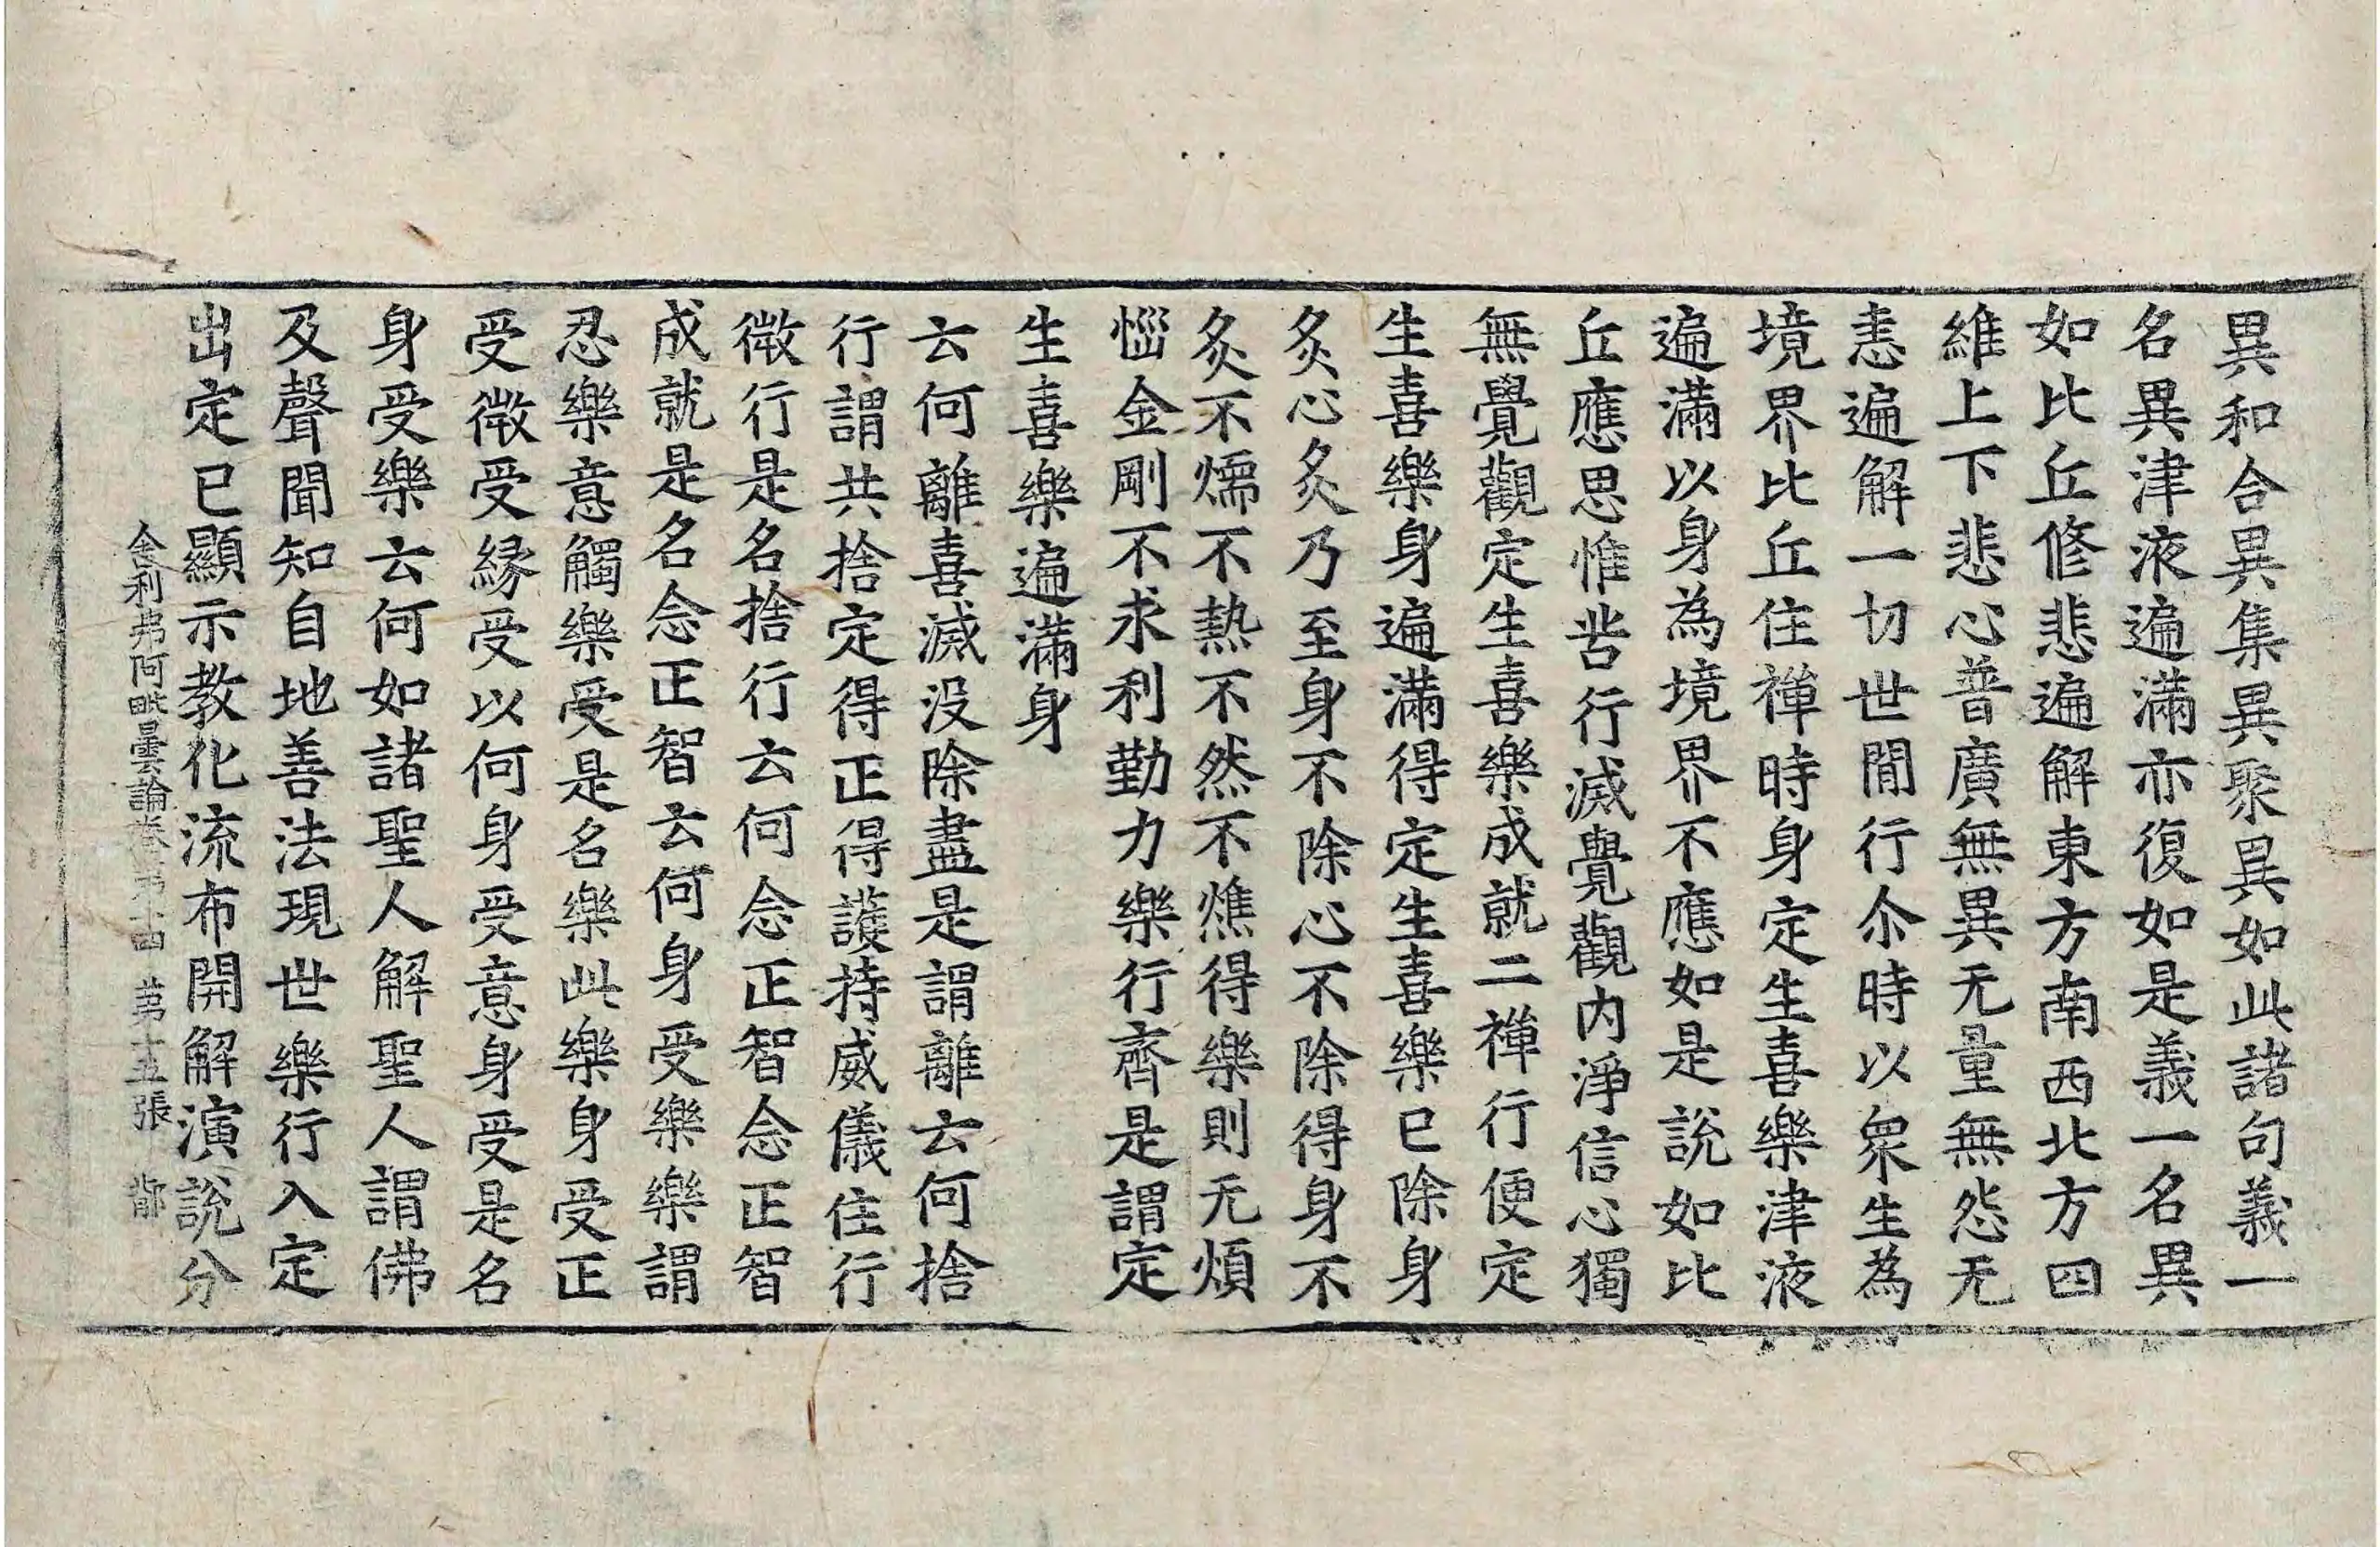 異和合異集異聚異如此諸句義一
名異津液遍滿亦復如是義一名異
如比丘修悲遍解東方南西北方四
維上下悲心普廣無異无量無怨无
恚遍解一切世間行尒時以衆生為
境界比丘住禪時身定生喜樂津液
遍滿以身為境界不應如是說如比
丘應思惟苦行滅覺觀內淨信心獨
無覺觀定生喜樂成就二禪行便定
生喜樂身遍滿得定生喜樂已除身
炙心炙乃至身不除心不除得身不
炙不燸不熱不然不燋得樂則无煩
惱金剛不求利勤力樂行齊是謂定
生喜樂遍滿身
云何離喜滅没除盡是謂離云何捨
行謂共捨定得正得護持威儀住行
微行是名捨行云何念正智念正智
成就是名念正智云何身受樂樂謂
忍樂意觸樂受是名樂此樂身受正
受微受緣受以何身受意身受是名
身受樂云何如諸聖人解聖人謂佛
及聲聞知自地善法現世樂行入定
出定已顯示教化流布開解演說分
舍利弗阿毗曇論卷第十四 第十五張